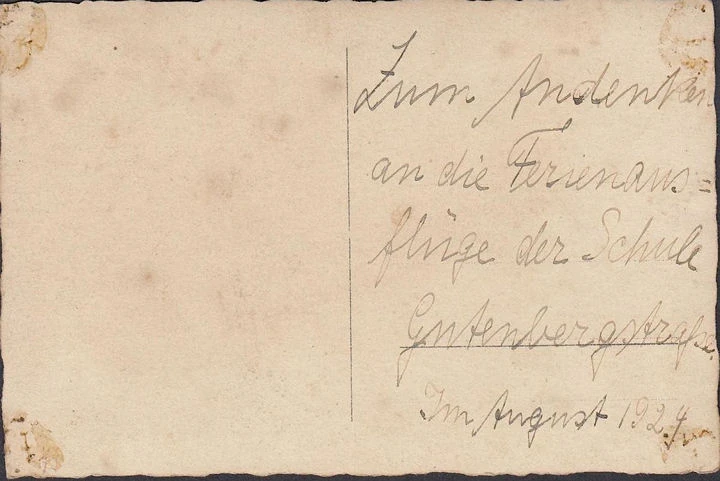 Zum Andenken
an die Ferienaus=
flüge der Schule
Gutenbergstraße.
Im August 1924